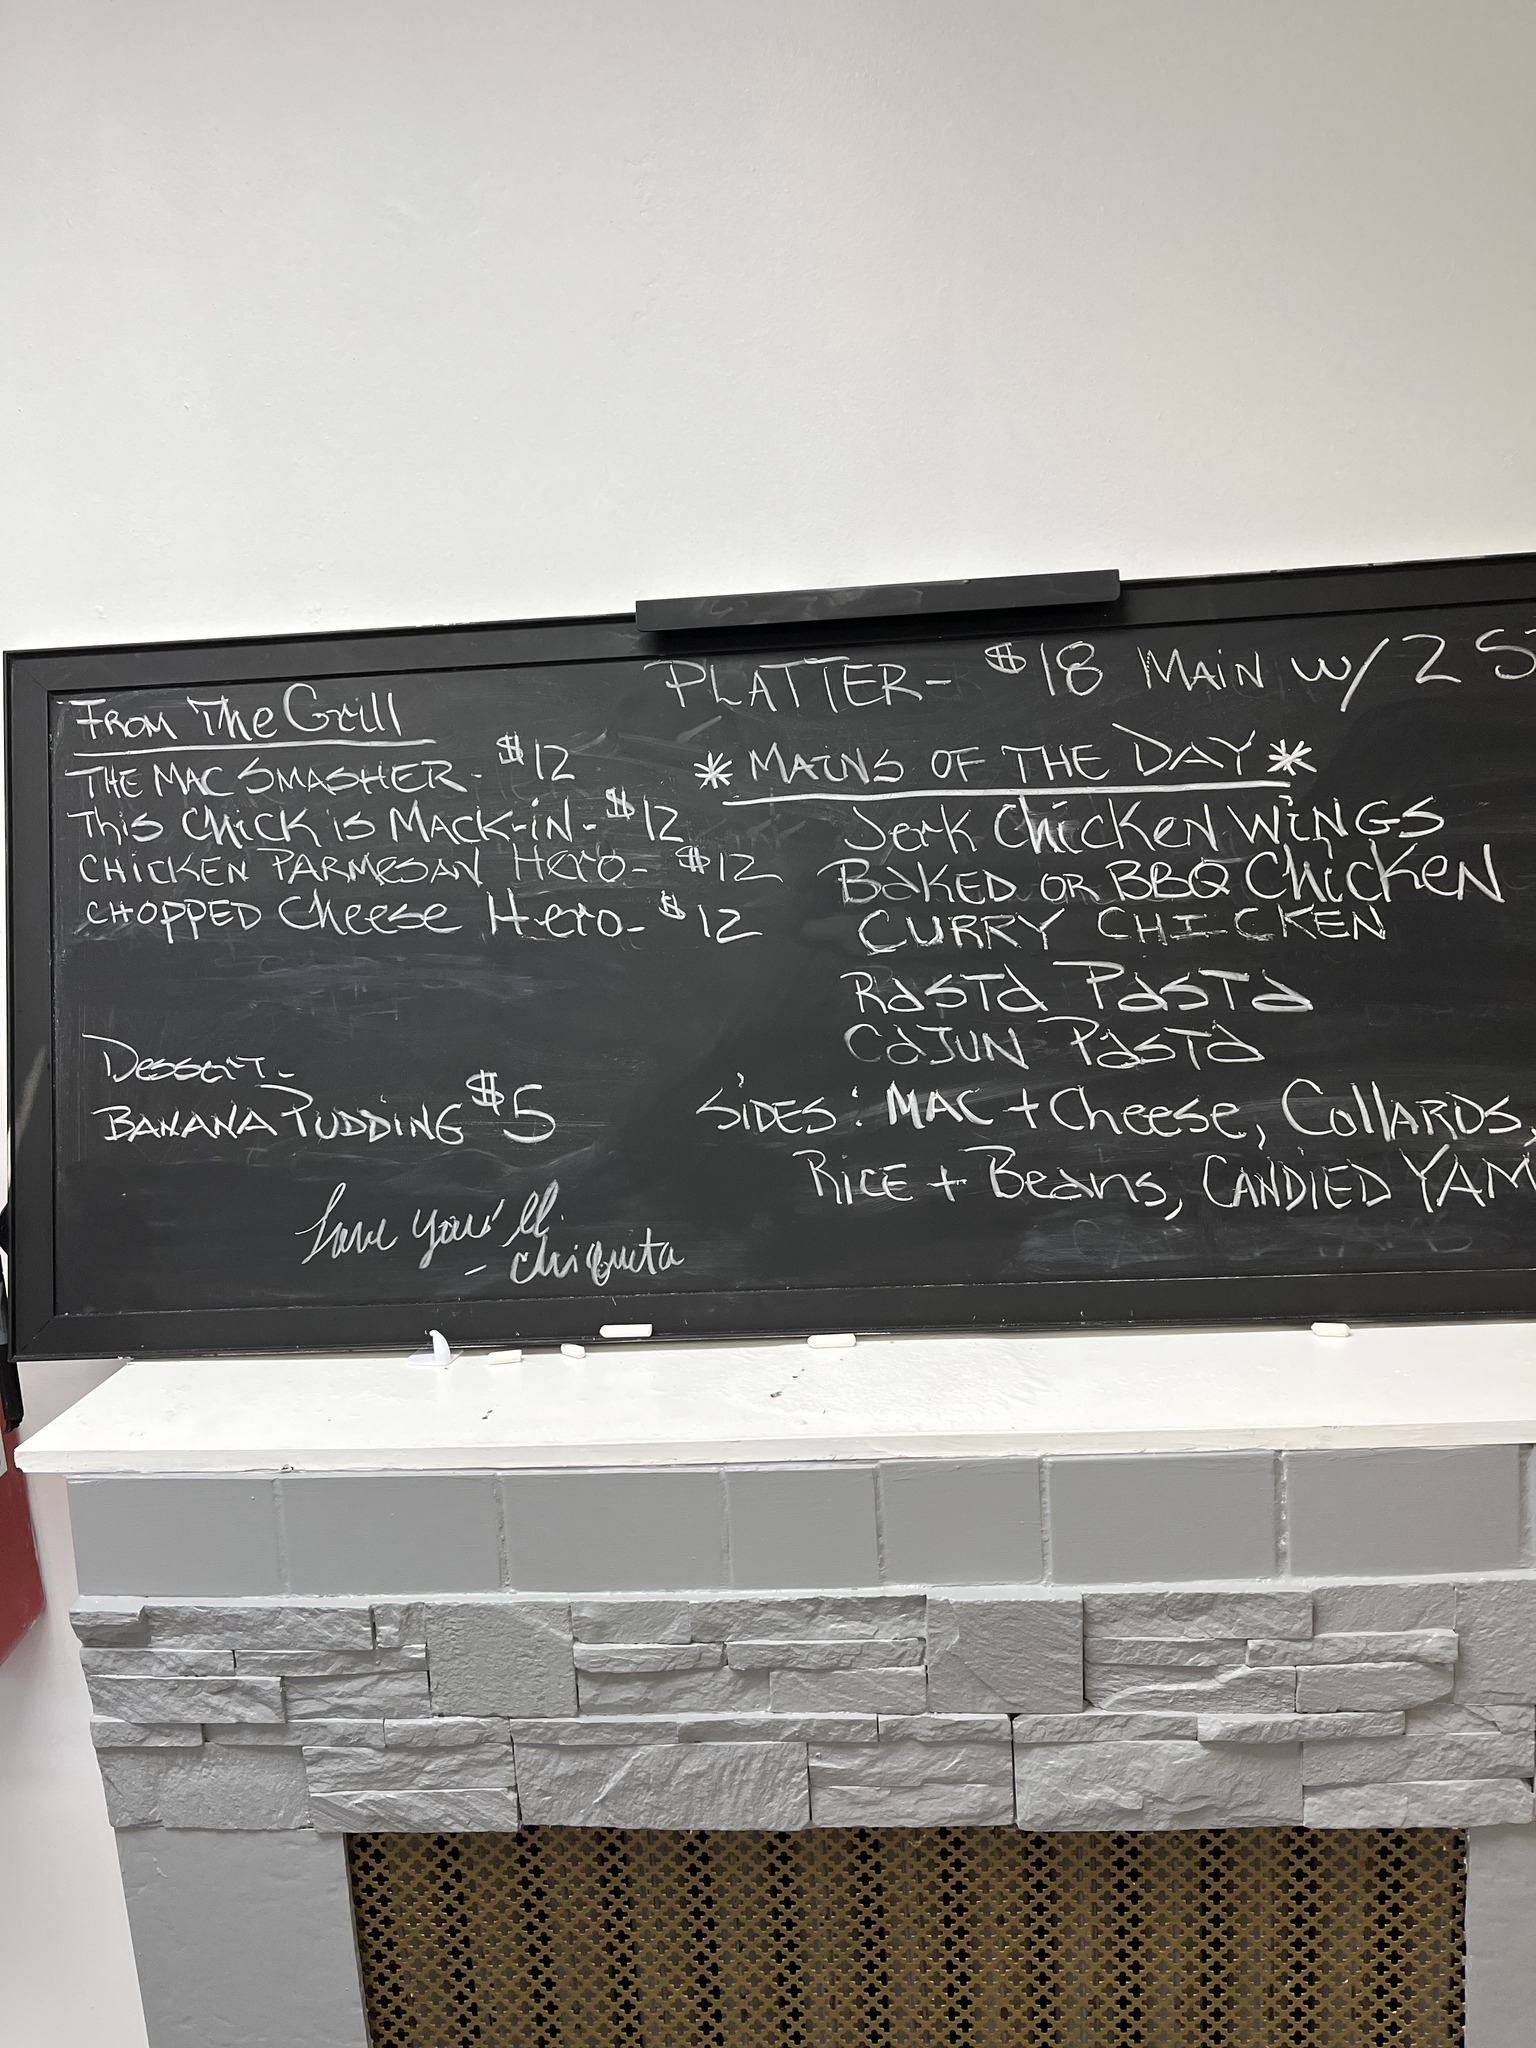 From The Grill
THE MAC SMASHER - $12
This Chick is Mack-in - $12
CHICKEN PARMESAN Hero - $12
CHOPPED Cheese Hero - $12
Dessert -
BANANA PUDDING $5
Love you'll.
- Chiqueta
PLATTER - $18 MAIN w/ 2 S
* MAiNS OF THE DAY *
Jerk Chicken WiNGS
BaKED OR BBQ ChicKeN
CURRY CHICKEN
RaSTa PaSTa
CaJUN PaSTa
SiDES: MAC + Cheese, CollARDS,
RiCE + Beans, CANDiED YAM